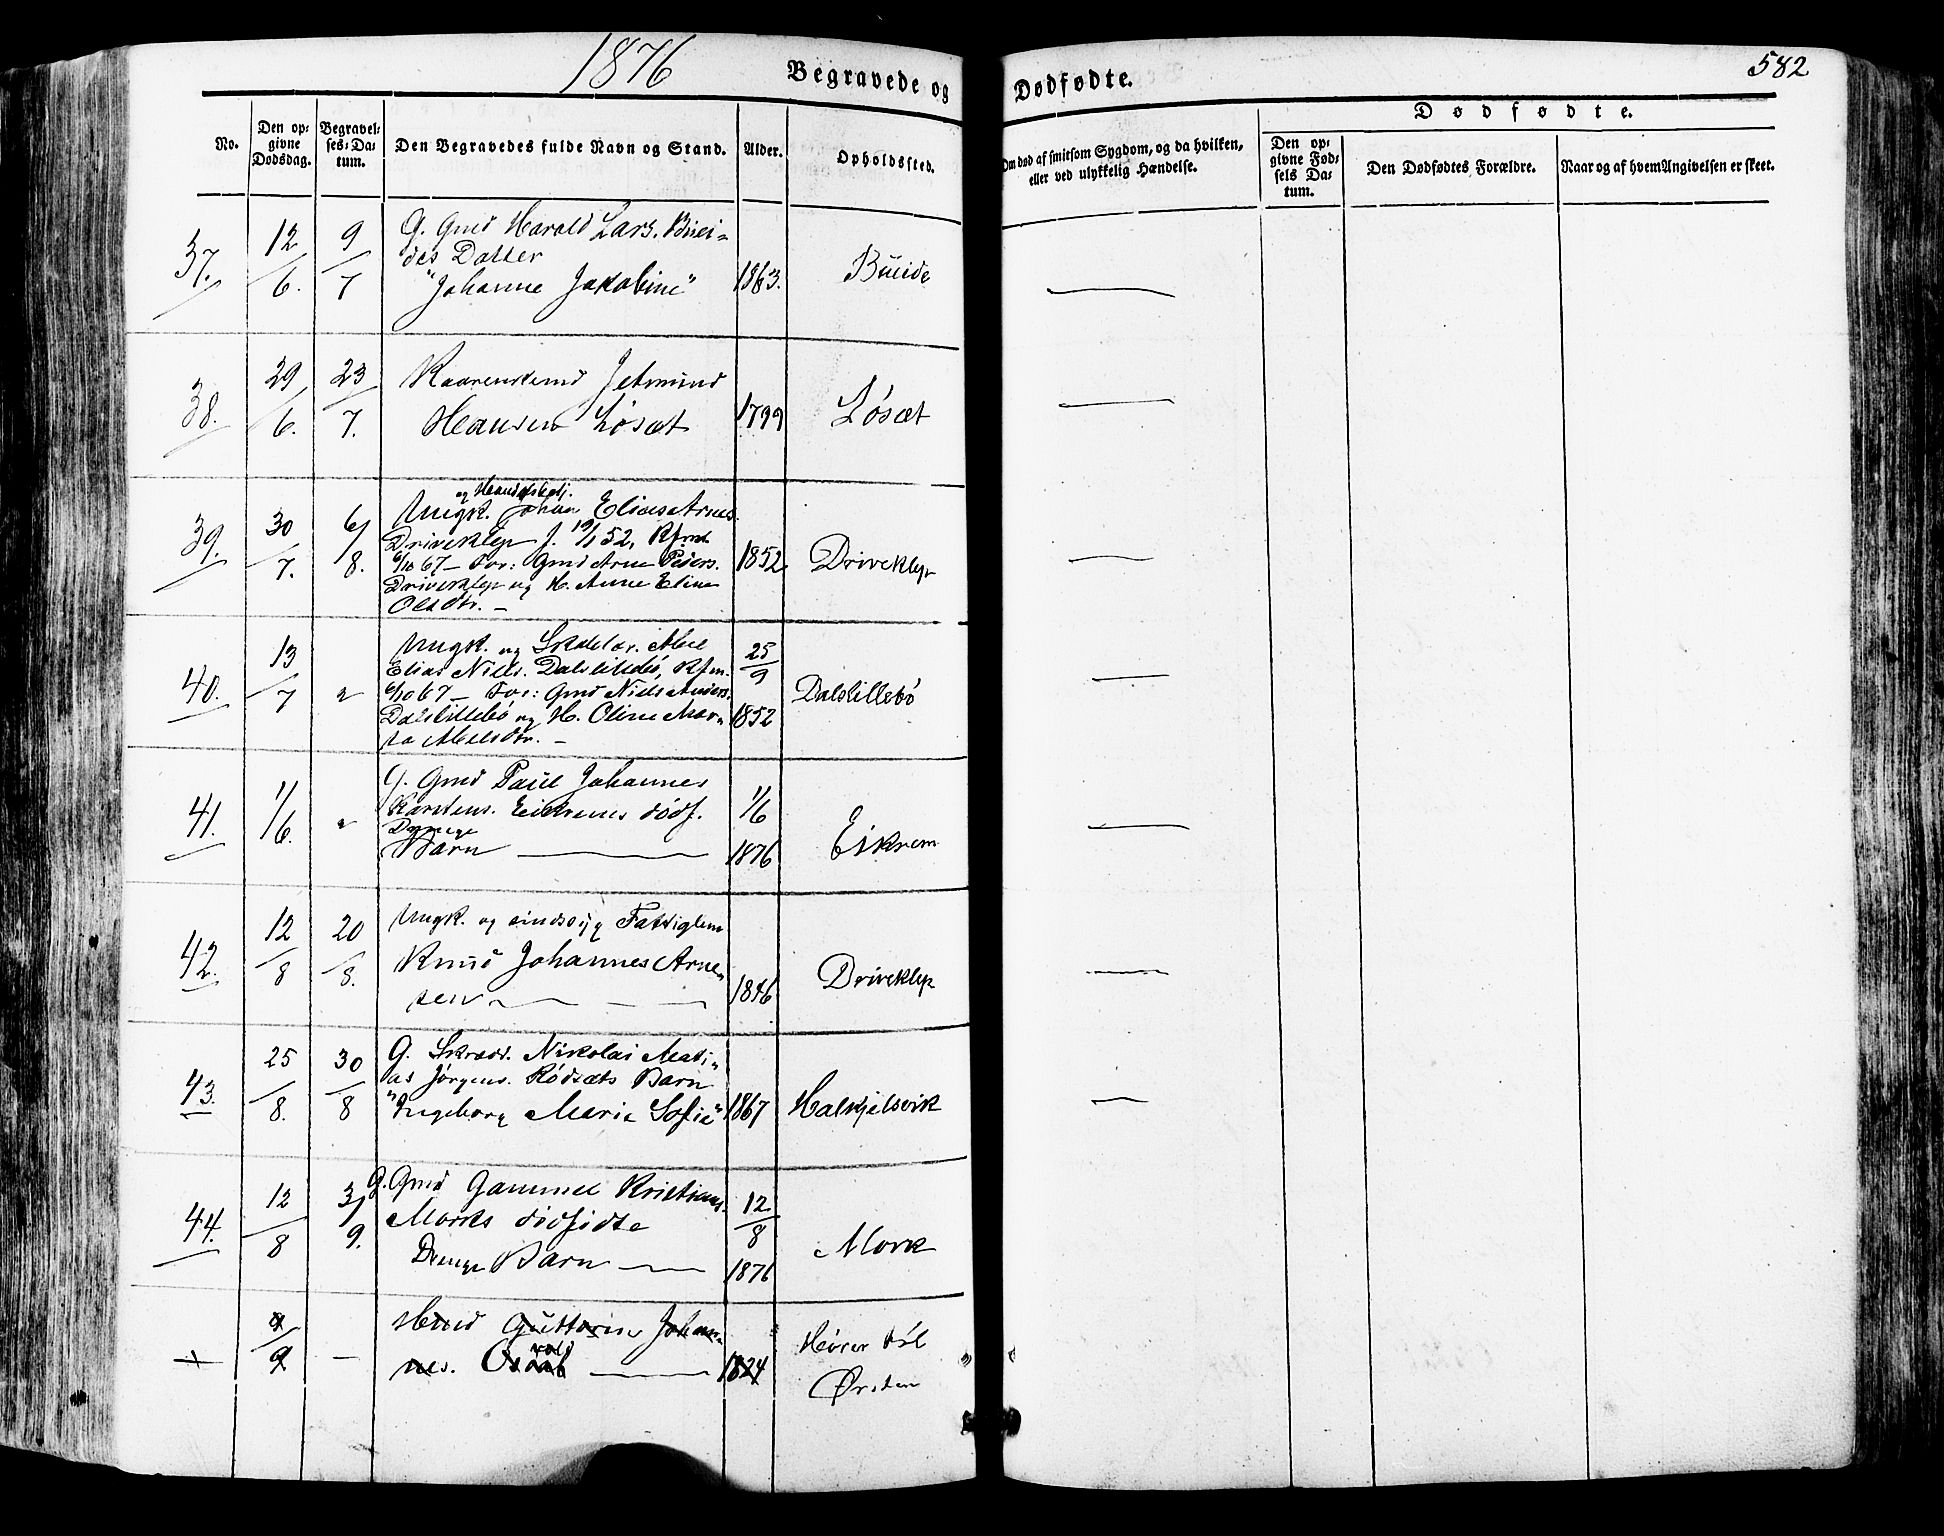 1876
Begravede og Dødfødte.
582
No.
Den op-
givne
Dødsdag.
Begravel-
ses-Da-
tum.
Den Begravedes fulde Navn og Stand.
Alder.
Opholdssted.
Om død af smitsom Sygdom, og da hvilken,
eller ved ulykkelig Hændelse.
Dødfødte.
Den op-
givne Fød-
sels Da-
tum.
Den Dødfødtes Forældre.
Naar og af hvem Angivelsen er skeet.
37. 12/6. 9/7
G. Gmd Harald Lars. Buei-
des Datter
"Johanne Jakobine" 1863. Bueide
38. 29/6. 23/7.
Jetmund
Hansen Løsæt 1799 Løsæt
39. 30/7. 6/8.
og
Ungk. Johan Elias Arnes.
Driveklep f. 19/1 52, Kfmt
6/10 67 – For: Gmd Arne Peders.
Driveklep og H. Anne Eline
Olsdtr. – 1852 Driveklep
40. 13/7 "
Ungk. og Abel
Elias Niels. Dalslillebø, Kfm.
6/10 67 – For: Gmd Niels Anders.
Dalslillebø og H. Oline Mar-
ta Abelsdtr. – 25/9 1852 Dalslillebø
41. 1/6. "
G. Gmd Paul Johannes
Karstens. Eikrems dødf.
Drenge
Barn — 1/6 1876 Eikrem
42. 12/8 20/8.
Ungk. og sindssyg Fattiglem
Knud Johannes Arne-
sen — 1846 Driveklep
43. 25/8. 30/8
G. Skræd. Nikolai Mati-
as Jørgens. Rødsæts Barn
"Ingeborg Marie Sofie" 1867 Halkjelsvik
44. 12/8 3/9.
G. Gmd Gammel Kristians.
Morks dødfødte
Drenge Barn — 12/8 1876 Mork
+ 9 –
Guttorm Johan-
nes. 1824 Hører til
Ørsten